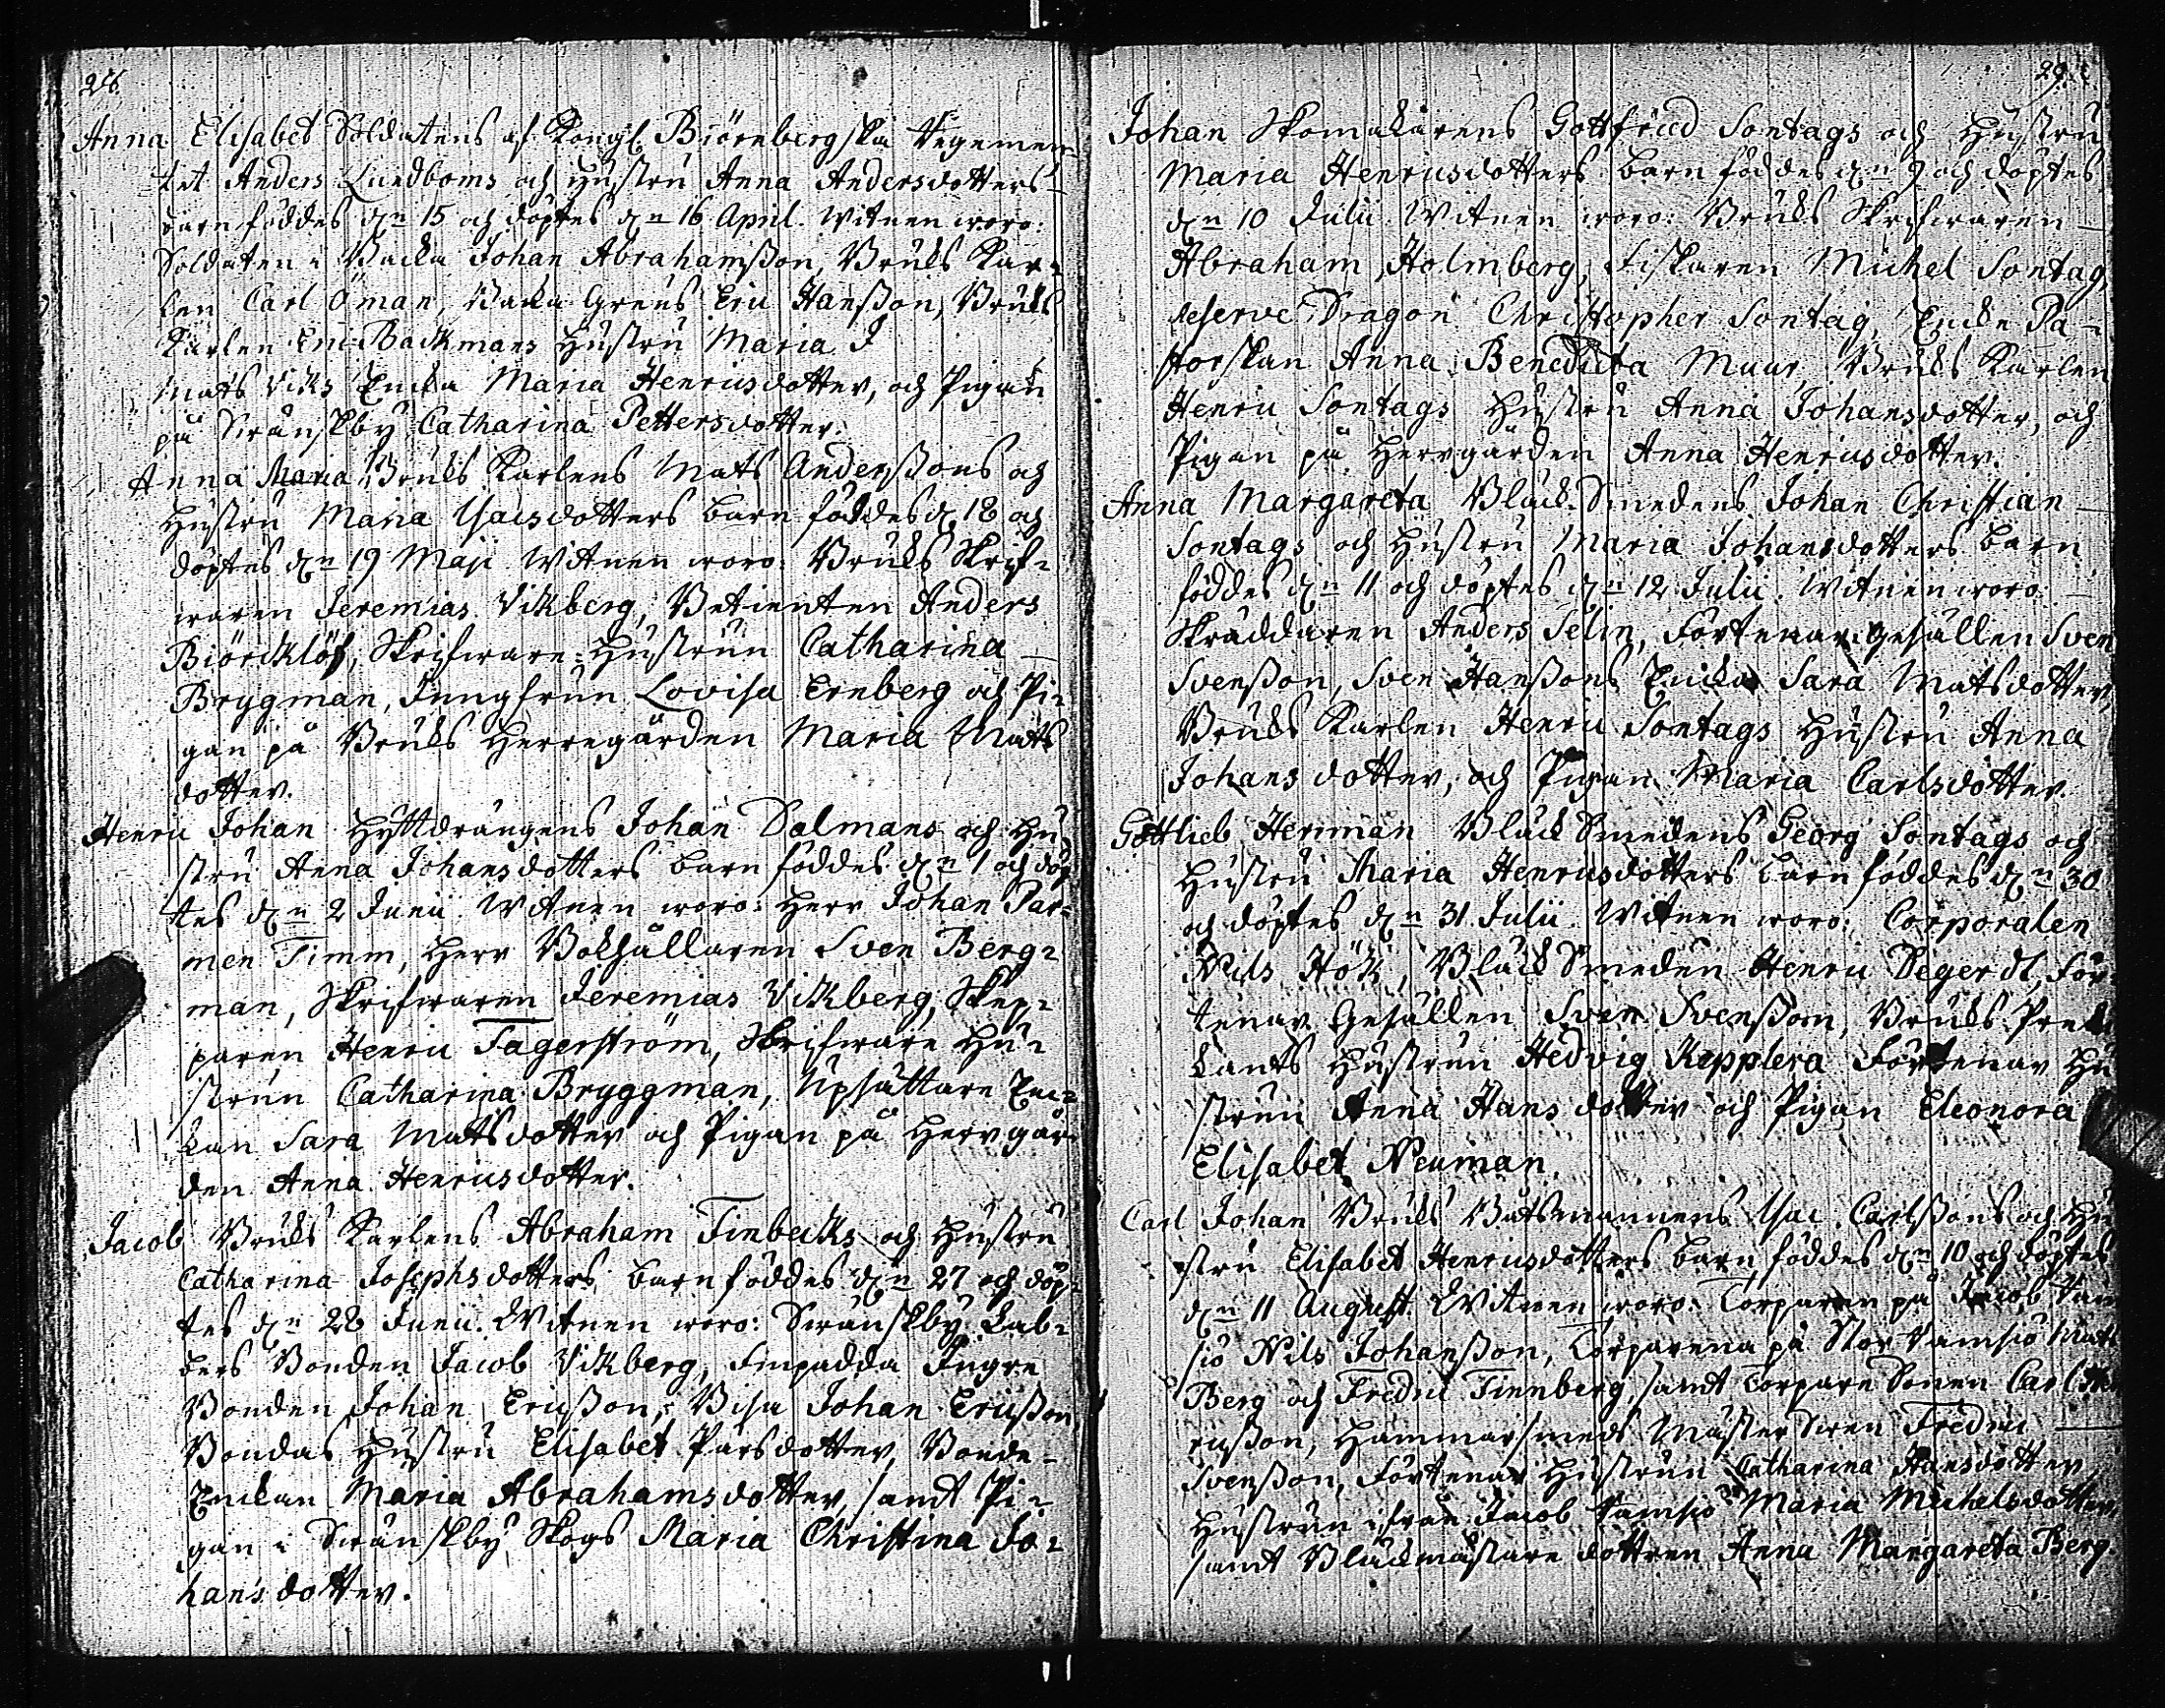 28.
Anna Elisabet Soldatens af Kongl. Biörnebergska Regemen-
tet Anders Lundboms och Hustru Anna Andersdotters
barn föddes dn 15 och döptes dn 16 April. Witnen woro:
Soldaten Backa Johan Abrahamsson, Bruks Kar-
len Carl Öman, Eric Hansson, Bruks
Karlen Eric Backmans Hustru Maria J
Mats Viks Encka Maria Henricsdotter, och Pigan
på Swänskby Catharina Pettersdotter.
Anna Maria Bruks Karlens Mats Anderssons och
Hustru Maria Isacsdotters barn föddes d. 18 och
döptes dn 19 Maji. Witnen woro: Bruks Skrif-
waren Jeremias Vikberg, Betienten Anders
Biörcklöf, Skrifware-Hustrun Catharina
Brygman, Jungfrun Lovisa Ernberg och Pi-
gan på Bruks Herregården Maria Mats
dotter.
Henric Johan Hyttdrängens Johan Dalmans och Hu-
stru Anna Johansdotters barn föddes dn 1 och döp-
tes dn 2 Junii. Witnen woro: Herr Johan Par-
men Timm, Herr Bokhållaren Sven Berg-
man, Skrifwaren Jeremias Vikberg, Skep-
paren Henric Fagerström, Skrifware Hu-
strun Catharina Bryggman, Upsättare En-
kan Sara Matsdotter och Pigan på Herrgår-
den Anna Henricsdotter.
Jacob Bruks Karlens Abraham Finbecks och Hustru
Catharina Josephsdotters barn föddes dn 27 och döp-
tes dn 28 Junii. Witnen woro: Swänskby Lab-
bers Bonden Jacob Vikberg, Finpadda Ingre
Bonden Johan Ericsson, Bisa Johan Ericsson
Bondas Hustru Elisabet Parsdotter, Bonde-
Enckan Maria Abrahamsdotter, samt Pi-
gan i Swänskby Skogs Maria Christina Jo-
hansdotter.
29.
Johan Skomakarens Gottfried Sontags och Hustru
Maria Henricsdotters barn föddes dn 9 och döptes
dn 10 Julii. Witnen woro: Bruks Skrifwaren
Abraham Holmberg, Fiskaren Michel Sontag,
Reserve Dragon Christopher Sontag, Encke Pa-
storskan Anna Benedicta Muur, Bruks Karlen
Henric Sontags Hustru Anna Johansdotter, och
Pigan på Herrgården Anna Henricsdotter.
Anna Margareta Bläck-Smedens Johan Christian
Sontags och Hustru Maria Johansdotters barn
föddes dn 11 och döptes dn 12 Julii. Witnen woro:
Skräddaren Anders Selin, Förtenar Gesällen Sven
Svensson, Sven Hanssons Encka Sara Matsdotter,
Bruks Karlen Henric Sontags Hustru Anna
Johansdotter, och Pigan Maria Carlsdotter
Gottlieb Herman Bläck Smedens Georg Sontags och
Hustru Maria Henricsdotters barn föddes dn 30
och döptes dn 31 Julii. Witnen woro: Corporalen
Nils Hök, Bläck Smeden Henric Degerdt, För-
tenar Gesällen Sven Svensson, Bruks Predi-
kants Hustrun Hedvig Kepplera Förtenar Hu
strun Anna Hansdotter och Pigan Eleonora
Elisabet Neuman.
Carl Johan Bruks Båtsmannens Isac Carlssons och Hu
stru Elisabet Henricsdotters barn föddes dn 10 och döptes
dn 11 August. Witnen woro: Torparen på Jacob Ram
siö Nils Johansson, Torparena på Stor Ramsiö Mats
Berg och Fredric Finnberg, samt Torpare Sonen Carl Hen
ricsson, Hammarsmeds Mäster Swen Fredric
Svensson, Förtenar Hustrun Catharina Hansdotter,
Hustrun ifrån Jacob Ramsiö Maria Michelsdotter,
samt Bläckmästare dottren Anna Margareta Berg.